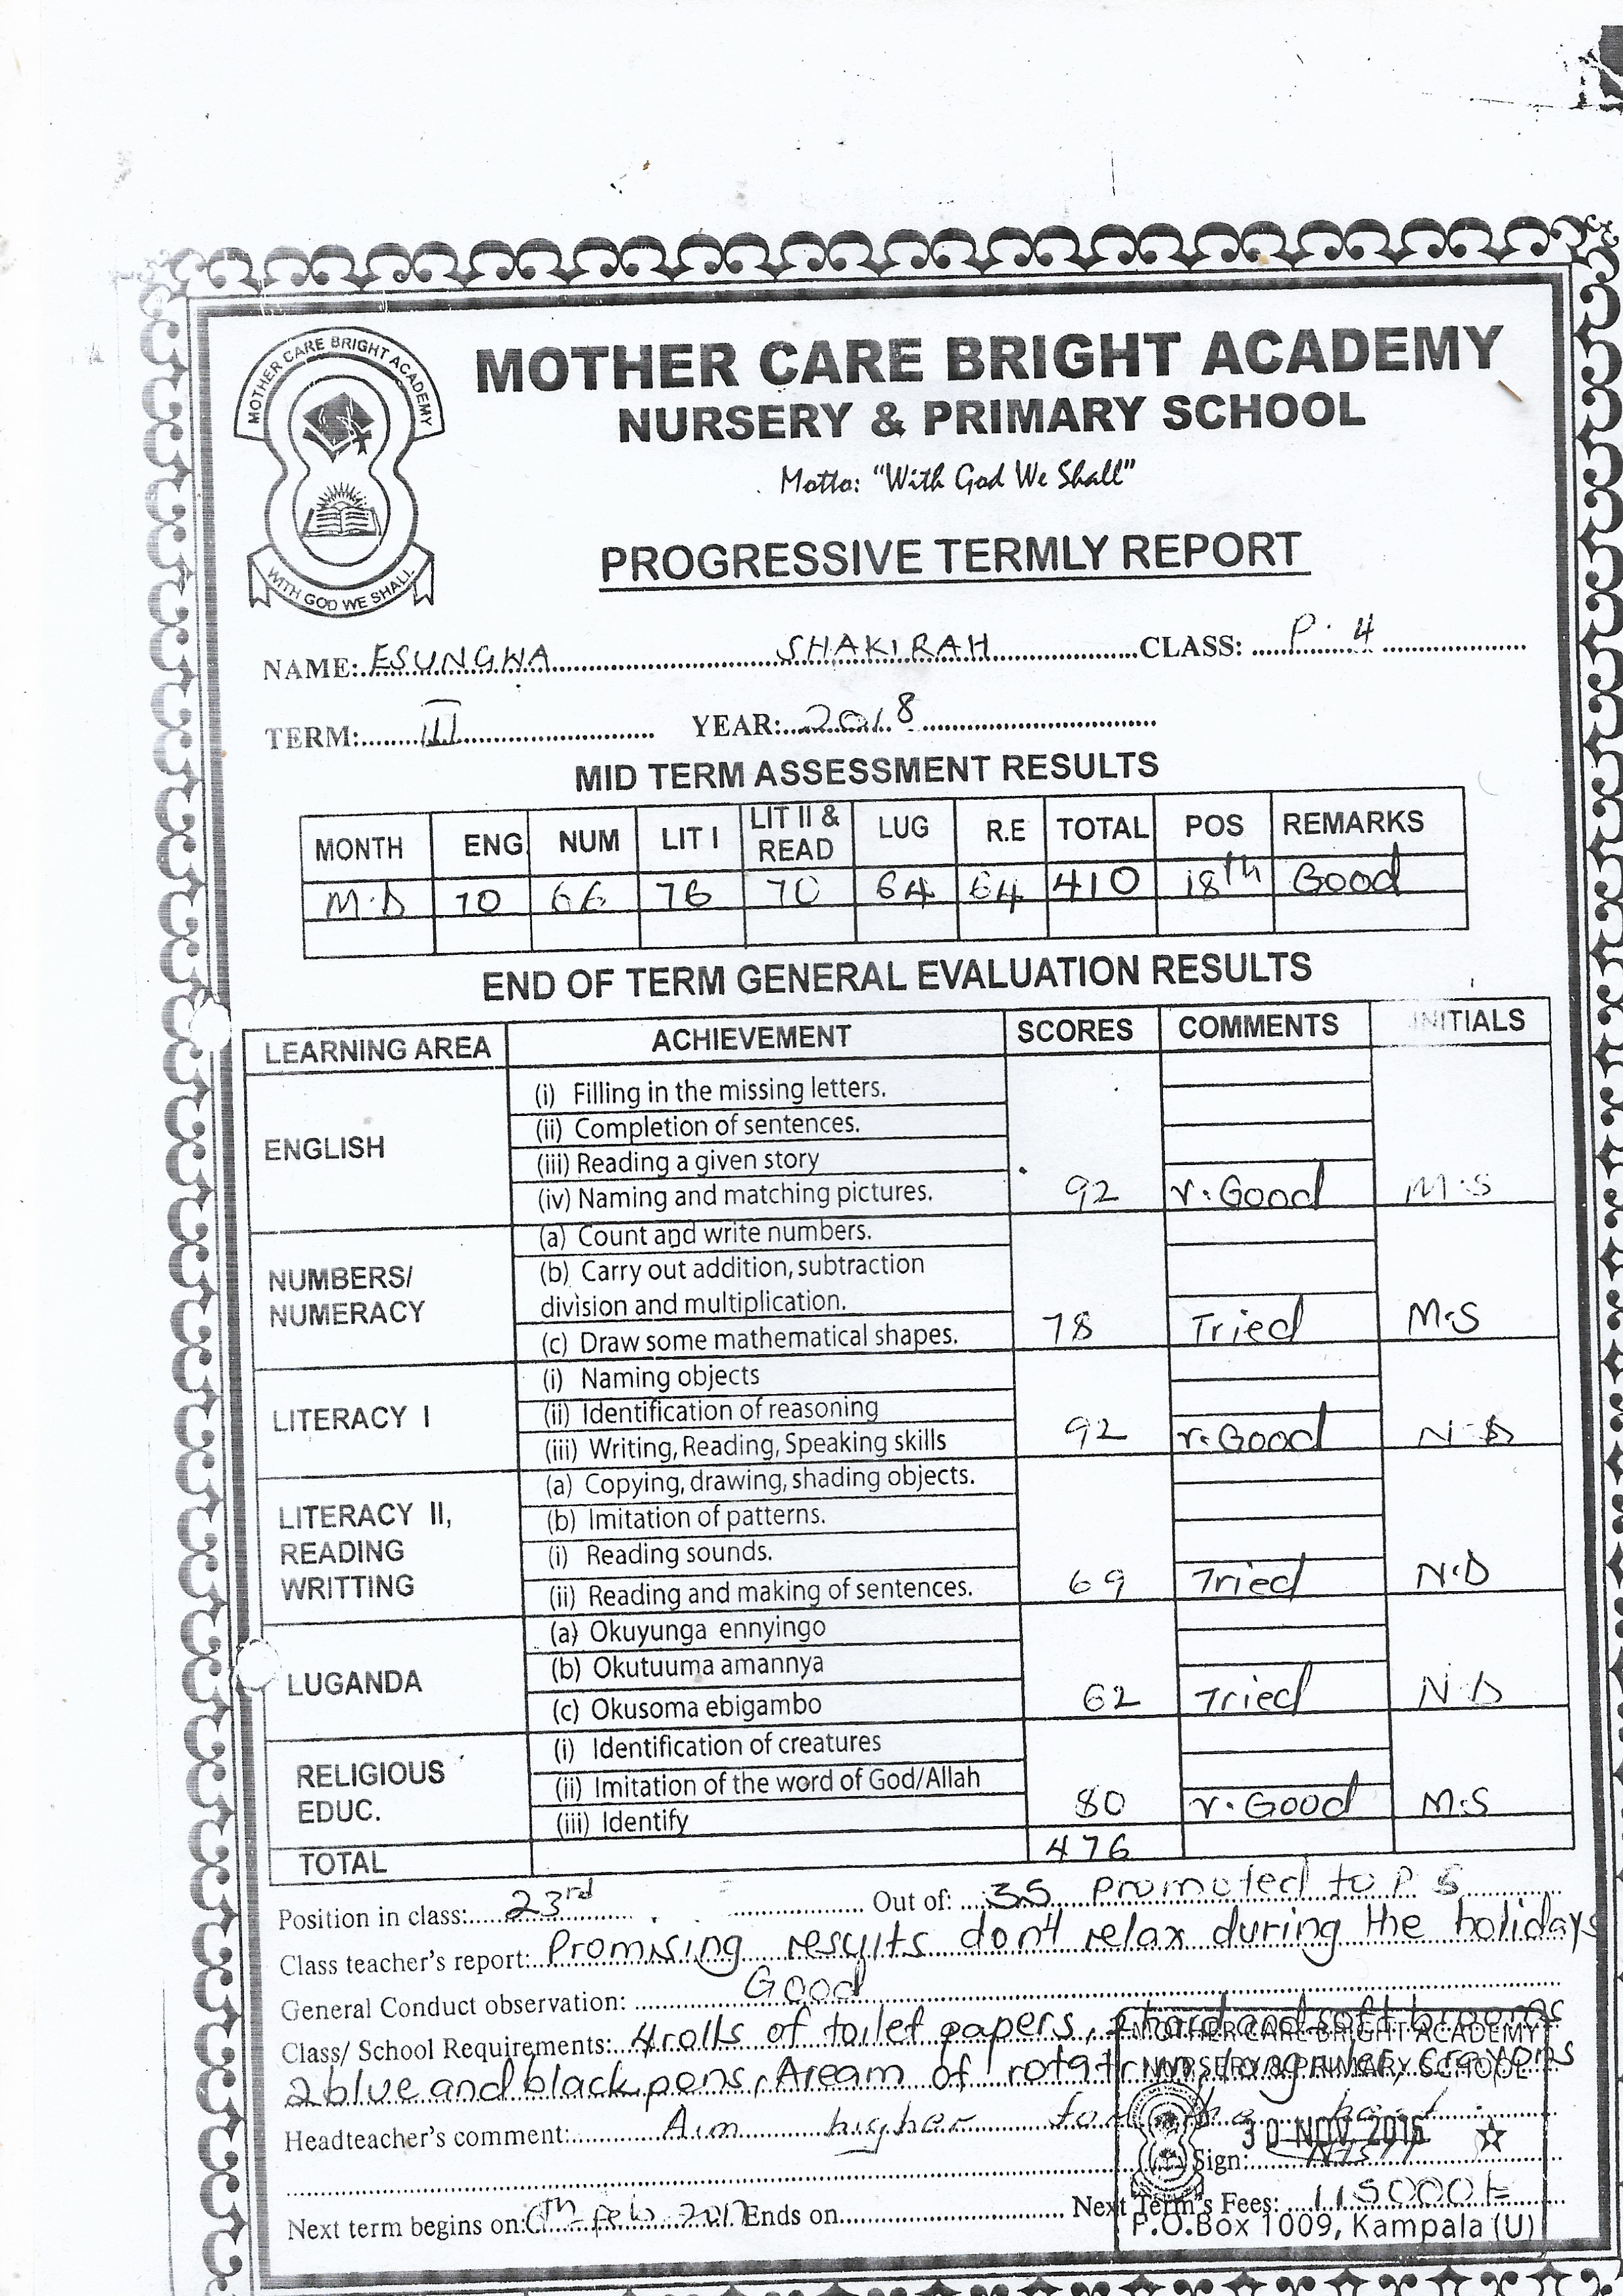 MOTHER CARE BRIGHT ACADEMY
WITH GOD WE SHALL
MOTHER CARE BRIGHT ACADEMY
NURSERY & PRIMARY SCHOOL
Motto: "With God We Shall"
PROGRESSIVE TERMLY REPORT
NAME: ESUNGWA SHAKIRAH CLASS: P.4
TERM: III YEAR: 2018
MID TERM ASSESSMENT RESULTS
MONTH ENG. NUM LIT I LIT II & READ LUG R.E TOTAL POS REMARKS
M.D 70 66 76 70 64 64 410 18th Good
END OF TERM GENERAL EVALUATION RESULTS
LEARNING AREA ACHIEVEMENT SCORES COMMENTS INITIALS
ENGLISH
(i) Filling in the missing letters.
(ii) Completion of sentences.
(iii) Reading a given story
(iv) Naming and matching pictures. 92 v.Good M.S
NUMBERS/
NUMERACY
(a) Count and write numbers.
(b) Carry out addition, subtraction
division and multiplication.
(c) Draw some mathematical shapes. 78 Tried M.S
LITERACY I
(i) Naming objects
(ii) Identification of reasoning
(iii) Writing, Reading, Speaking skills 92 v.Good N.D
LITERACY II,
READING
WRITTING
(a) Copying, drawing, shading objects.
(b) Imitation of patterns.
(i) Reading sounds.
(ii) Reading and making of sentences. 69 Tried N.D
LUGANDA
(a) Okuyunga ennyingo
(b) Okutuuma amannya
(c) Okusoma ebigambo 62 Tried N.D
RELIGIOUS
EDUC.
(i) Identification of creatures
(ii) Imitation of the word of God/Allah
(iii) Identify 80 v.Good M.S
TOTAL 476
Position in class: 23rd Out of: 35 Promoted to P 5
Class teacher's report: Promising results don't relax during the holidays
General Conduct observation: Good
Class/ School Requirements: 4 rolls of toilet papers, hard and soft brooms
2 blue and black pens, A ream of crayons
MOTHER CARE BRIGHT ACADEMY
NURSERY & PRIMARY SCHOOL
Headteacher's comment: Aim higher for the best
30 NOV 2016
Sign:
Next term begins on: 6th Feb 2017 Ends on Next Term's Fees: 115000/=
P.O.Box 1009, Kampala (U)